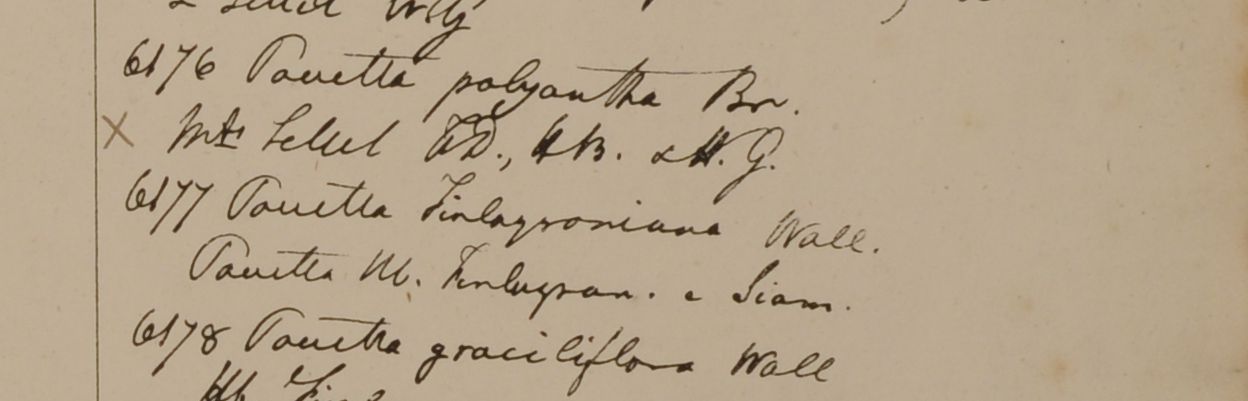 Sellet
6176 Pavetta polyantha Br.
X Mte Sellet F.D., HB. & H. G.
6177 Pavetta Finlaysoniana Wall.
Pavetta Hb. Finlayson. e Siam.
6178 Pavetta graciliflora Wall
Hb Finl